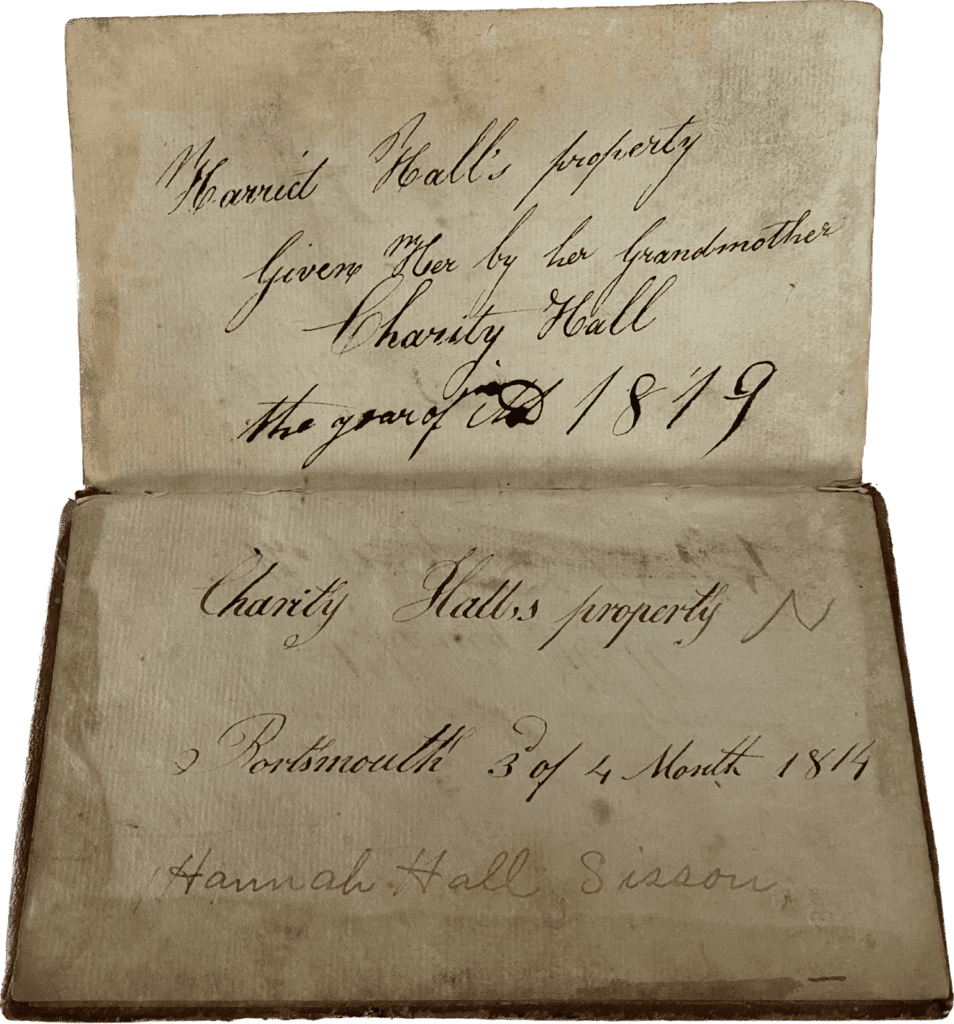 Harriet Hall's property
Given Her by her Grandmother
Charity Hall
the year of 1819
Charity Hall,s property N
Portsmouth 3d of 4 Month 1814
Hannah Hall Sisson